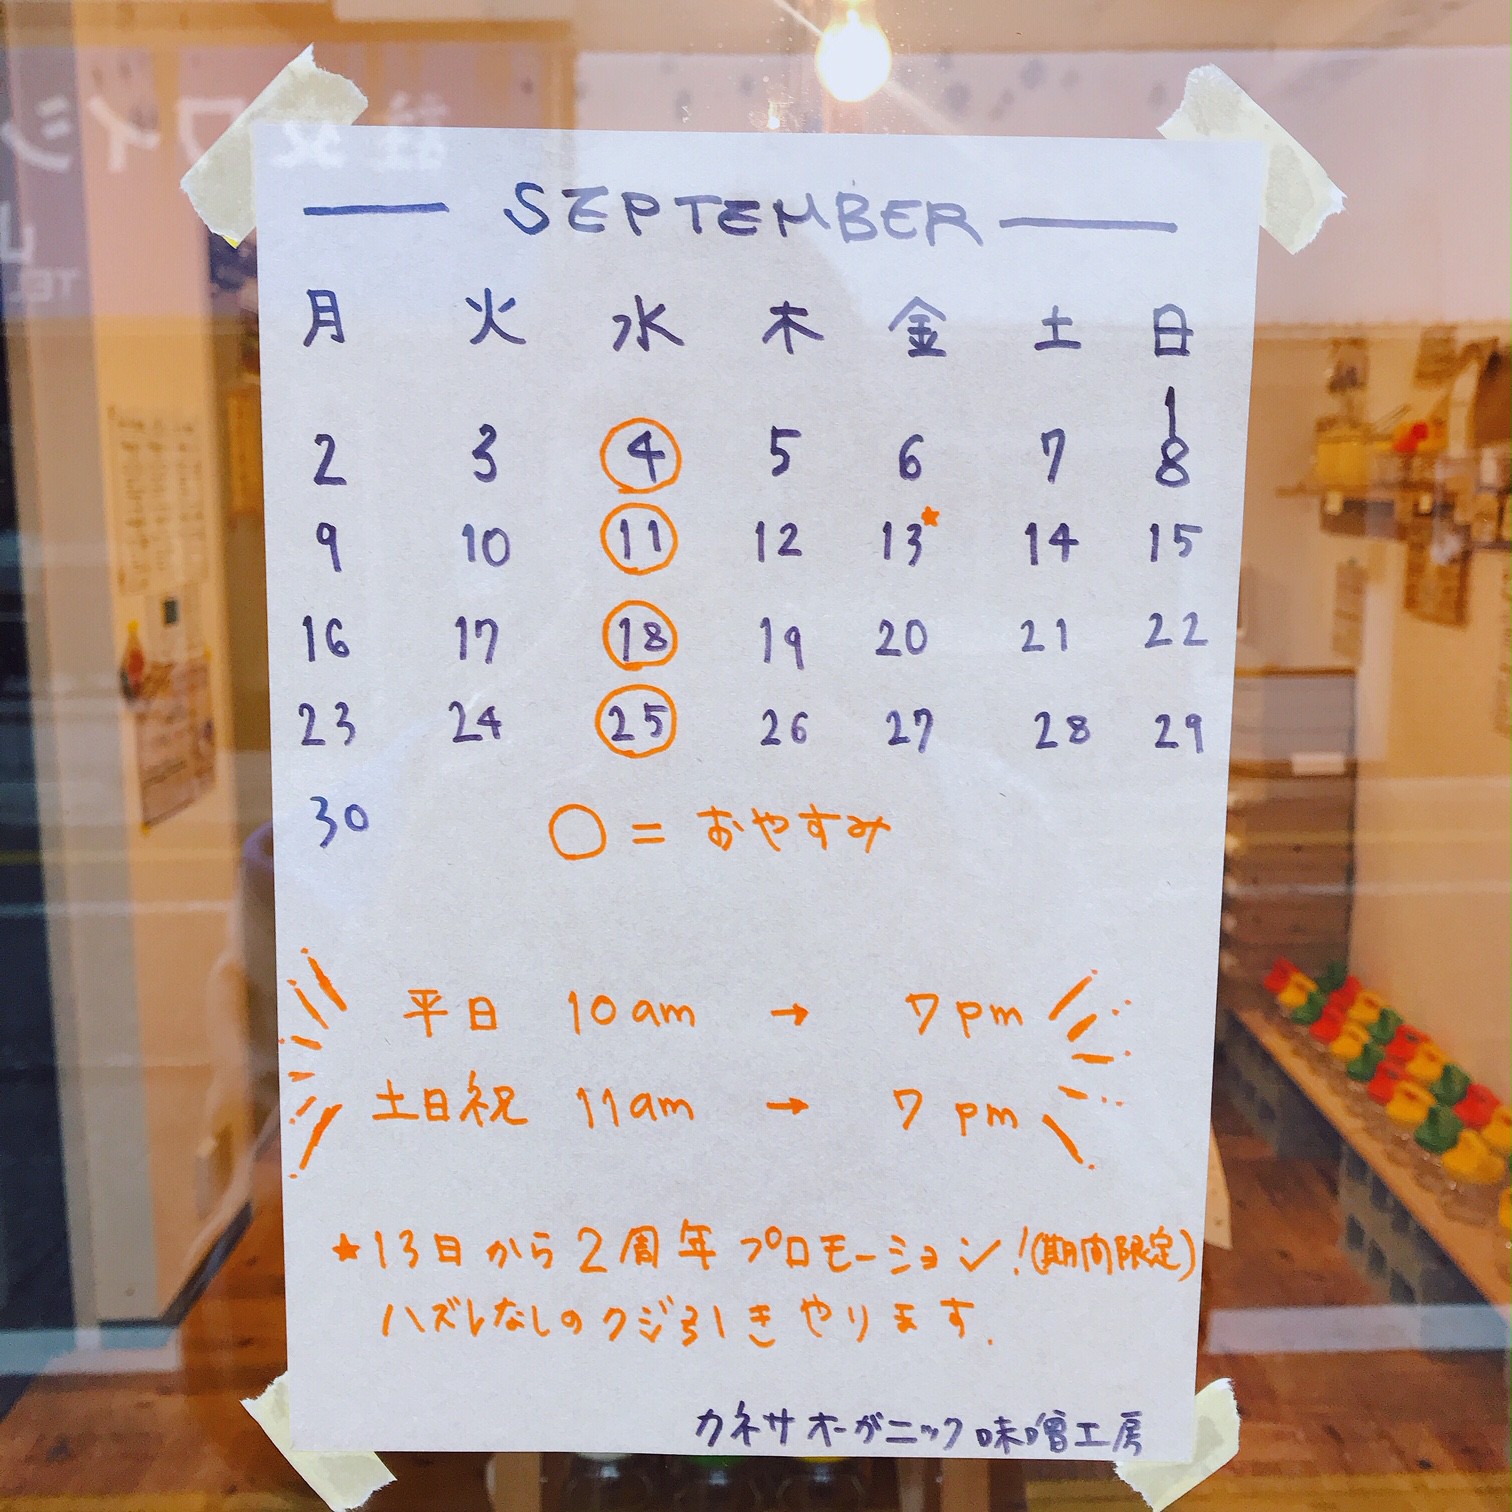 SEPTEMBER
月 火 水 木 金 土 日
1
2 3 4 5 6 7 8
9 10 11 12 13★ 14 15
16 17 18 19 20 21 22
23 24 25 26 27 28 29
30 ○ = おやすみ
平日 10am → 7pm
土日祝 11am → 7pm
★13日から2周年プロモーション!(期間限定)
ハズレなしのクジ引きやります.
カネサオーガニック味噌工房